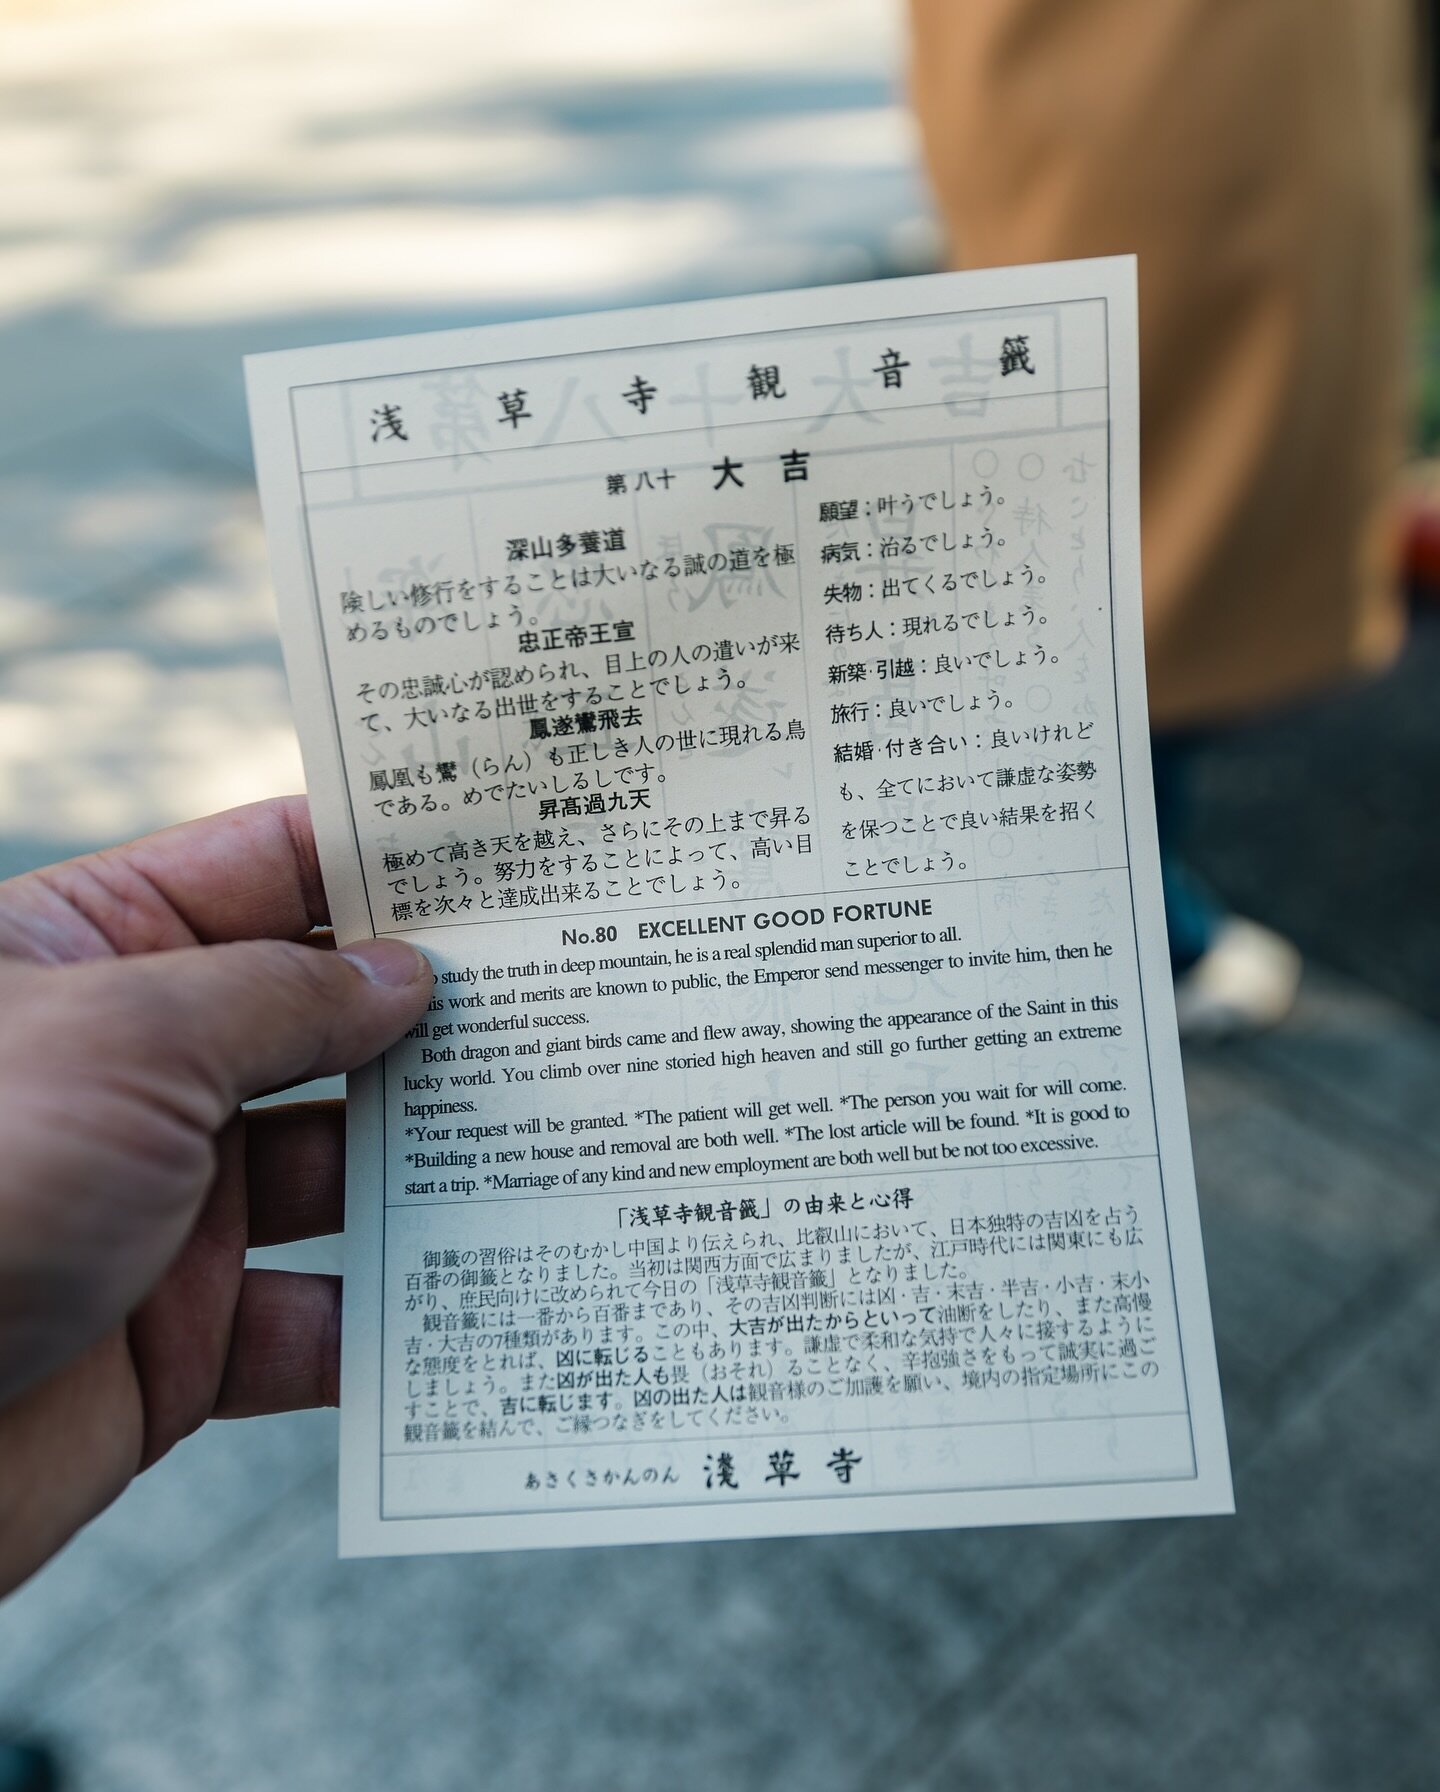 浅草寺観音籤
第八十 大吉
深山多養道
険しい修行をすることは大いなる誠の道を極
めるものでしょう。
忠正帝王宣
その忠誠心が認められ、目上の人の遣いが来
て、大いなる出世をすることでしょう。
鳳遂鸞飛去
鳳凰も鸞（らん）も正しき人の世に現れる鳥
である。めでたいしるしです。
昇髙過九天
極めて高き天を越え、さらにその上まで昇る
でしょう。努力をすることによって、高い目
標を次々と達成出来ることでしょう。
願望：叶うでしょう。
病気：治るでしょう。
失物：出てくるでしょう。
待ち人：現れるでしょう。
新築·引越：良いでしょう。
旅行：良いでしょう。
結婚·付き合い：良いけれど
も、全てにおいて謙虚な姿勢
を保つことで良い結果を招く
ことでしょう。
No.80 EXCELLENT GOOD FORTUNE
study the truth in deep mountain, he is a real splendid man superior to all.
his work and merits are known to public, the Emperor send messenger to invite him, then he
will get wonderful success.
Both dragon and giant birds came and flew away, showing the appearance of the Saint in this
lucky world. You climb over nine storied high heaven and still go further getting an extreme
happiness.
*Your request will be granted. *The patient will get well. *The person you wait for will come.
*Building a new house and removal are both well. *The lost article will be found. *It is good to
start a trip. *Marriage of any kind and new employment are both well but be not too excessive.
「浅草寺観音籤」の由来と心得
御籤の習俗はそのむかし中国より伝えられ、比叡山において、日本独特の吉凶を占う
百番の御籤となりました。当初は関西方面で広まりましたが、江戸時代には関東にも広
がり、庶民向けに改められて今日の「浅草寺観音籤」となりました。
観音籤には一番から百番まであり、その吉凶判断には凶・吉・末吉・半吉・小吉・末小
吉・大吉の7種類があります。この中、大吉が出たからといって油断をしたり、また高慢
な態度をとれば、凶に転じることもあります。謙虚で柔和な気持で人々に接するように
しましょう。また凶が出た人も畏（おそれ）ることなく、辛抱強さをもって誠実に過ご
すことで、吉に転じます。凶の出た人は観音様のご加護を願い、境内の指定場所にこの
観音籤を結んで、ご縁つなぎをしてください。
あさくさかんのん 淺草寺